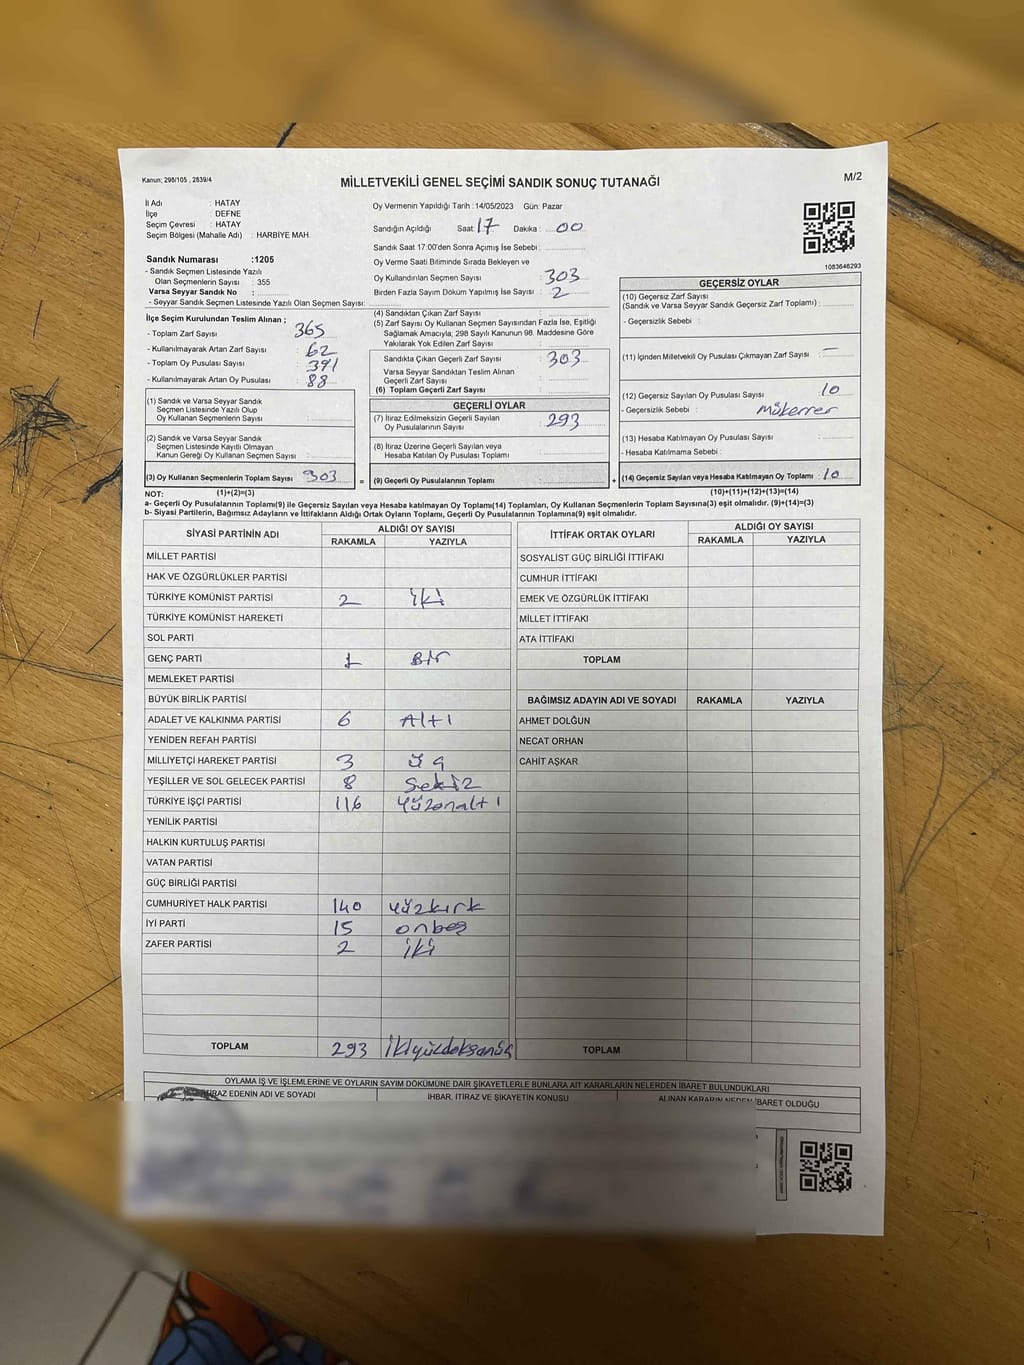 Kanun; 298/105 , 2839/4
MİLLETVEKİLİ GENEL SEÇİMİ SANDIK SONUÇ TUTANAĞI
M/2
İl Adı : HATAY
İlçe : DEFNE
Seçim Çevresi : HATAY
Seçim Bölgesi (Mahalle Adı) : HARBİYE MAH.
Sandık Numarası :1205
- Sandık Seçmen Listesinde Yazılı
Olan Seçmenlerin Sayısı : 355
Varsa Seyyar Sandık No :
- Seyyar Sandık Seçmen Listesinde Yazılı Olan Seçmen Sayısı:
Oy Vermenin Yapıldığı Tarih :14/05/2023 Gün: Pazar
Sandığın Açıldığı Saat: 17 Dakika : 00
Sandık Saat 17:00'den Sonra Açımış İse Sebebi :
Oy Verme Saati Bitiminde Sırada Bekleyen ve
Oy Kullandırılan Seçmen Sayısı : 303
Birden Fazla Sayım Döküm Yapılmış İse Sayısı : 2
1083646293
İlçe Seçim Kurulundan Teslim Alınan ;
- Toplam Zarf Sayısı : 365
- Kullanılmayarak Artan Zarf Sayısı : 62
- Toplam Oy Pusulası Sayısı : 391
- Kullanılmayarak Artan Oy Pusulası : 88
(1) Sandık ve Varsa Seyyar Sandık
Seçmen Listesinde Yazılı Olup
Oy Kullanan Seçmenlerin Sayısı :
(2) Sandık ve Varsa Seyyar Sandık
Seçmen Listesinde Kayıtlı Olmayan
Kanun Gereği Oy Kullanan Seçmen Sayısı :
(3) Oy Kullanan Seçmenlerin Toplam Sayısı : 303
(4) Sandıktan Çıkan Zarf Sayısı :
(5) Zarf Sayısı Oy Kullanan Seçmen Sayısından Fazla İse, Eşitliği
Sağlamak Amacıyla; 298 Sayılı Kanunun 98. Maddesine Göre
Yakılarak Yok Edilen Zarf Sayısı :
Sandıkta Çıkan Geçerli Zarf Sayısı : 303
Varsa Seyyar Sandıktan Teslim Alınan
Geçerli Zarf Sayısı :
(6) Toplam Geçerli Zarf Sayısı :
GEÇERLİ OYLAR
(7) İtiraz Edilmeksizin Geçerli Sayılan
Oy Pusulalarının Sayısı : 293
(8) İtiraz Üzerine Geçerli Sayılan veya
Hesaba Katılan Oy Pusulası Toplamı :
= (9) Geçerli Oy Pusulalarının Toplamı :
GEÇERSİZ OYLAR
(10) Geçersiz Zarf Sayısı
(Sandık ve Varsa Seyyar Sandık Geçersiz Zarf Toplamı) :
- Geçersizlik Sebebi :
(11) İçinden Milletvekili Oy Pusulası Çıkmayan Zarf Sayısı : —
(12) Geçersiz Sayılan Oy Pusulası Sayısı : 10
- Geçersizlik Sebebi : mükerrer
(13) Hesaba Katılmayan Oy Pusulası Sayısı :
- Hesaba Katılmama Sebebi :
+ (14) Geçersiz Sayılan veya Hesaba Katılmayan Oy Toplamı : 10
NOT: (1)+(2)=(3) (10)+(11)+(12)+(13)=(14)
a- Geçerli Oy Pusulalarının Toplamı(9) ile Geçersiz Sayılan veya Hesaba katılmayan Oy Toplamı(14) Toplamları, Oy Kullanan Seçmenlerin Toplam Sayısına(3) eşit olmalıdır. (9)+(14)=(3)
b- Siyasi Partilerin, Bağımsız Adayların ve İttifakların Aldığı Ortak Oyların Toplamı, Geçerli Oy Pusulalarının Toplamına(9) eşit olmalıdır.
SİYASİ PARTİNİN ADI ALDIĞI OY SAYISI
RAKAMLA YAZIYLA
MİLLET PARTİSİ
HAK VE ÖZGÜRLÜKLER PARTİSİ
TÜRKİYE KOMÜNİST PARTİSİ 2 iki
TÜRKİYE KOMÜNİST HAREKETİ
SOL PARTİ
GENÇ PARTİ 1 Bir
MEMLEKET PARTİSİ
BÜYÜK BİRLİK PARTİSİ
ADALET VE KALKINMA PARTİSİ 6 Altı
YENİDEN REFAH PARTİSİ
MİLLİYETÇİ HAREKET PARTİSİ 3 üç
YEŞİLLER VE SOL GELECEK PARTİSİ 8 sekiz
TÜRKİYE İŞÇİ PARTİSİ 116 yüzonaltı
YENİLİK PARTİSİ
HALKIN KURTULUŞ PARTİSİ
VATAN PARTİSİ
GÜÇ BİRLİĞİ PARTİSİ
CUMHURİYET HALK PARTİSİ 140 yüzkırk
İYİ PARTİ 15 onbeş
ZAFER PARTİSİ 2 iki
TOPLAM 293 ikiyüzdoksanüç
İTTİFAK ORTAK OYLARI ALDIĞI OY SAYISI
RAKAMLA YAZIYLA
SOSYALİST GÜÇ BİRLİĞİ İTTİFAKI
CUMHUR İTTİFAKI
EMEK VE ÖZGÜRLÜK İTTİFAKI
MİLLET İTTİFAKI
ATA İTTİFAKI
TOPLAM
BAĞIMSIZ ADAYIN ADI VE SOYADI RAKAMLA YAZIYLA
AHMET DOLĞUN
NECAT ORHAN
CAHİT AŞKAR
TOPLAM
OYLAMA İŞ VE İŞLEMLERİNE VE OYLARIN SAYIM DÖKÜMÜNE DAİR ŞİKAYETLERLE BUNLARA AİT KARARLARIN NELERDEN İBARET BULUNDUKLARI
EDENİN ADI VE SOYADI İHBAR, İTİRAZ VE ŞİKAYETİN KONUSU ALINAN KARARIN NEDEN İBARET OLDUĞU